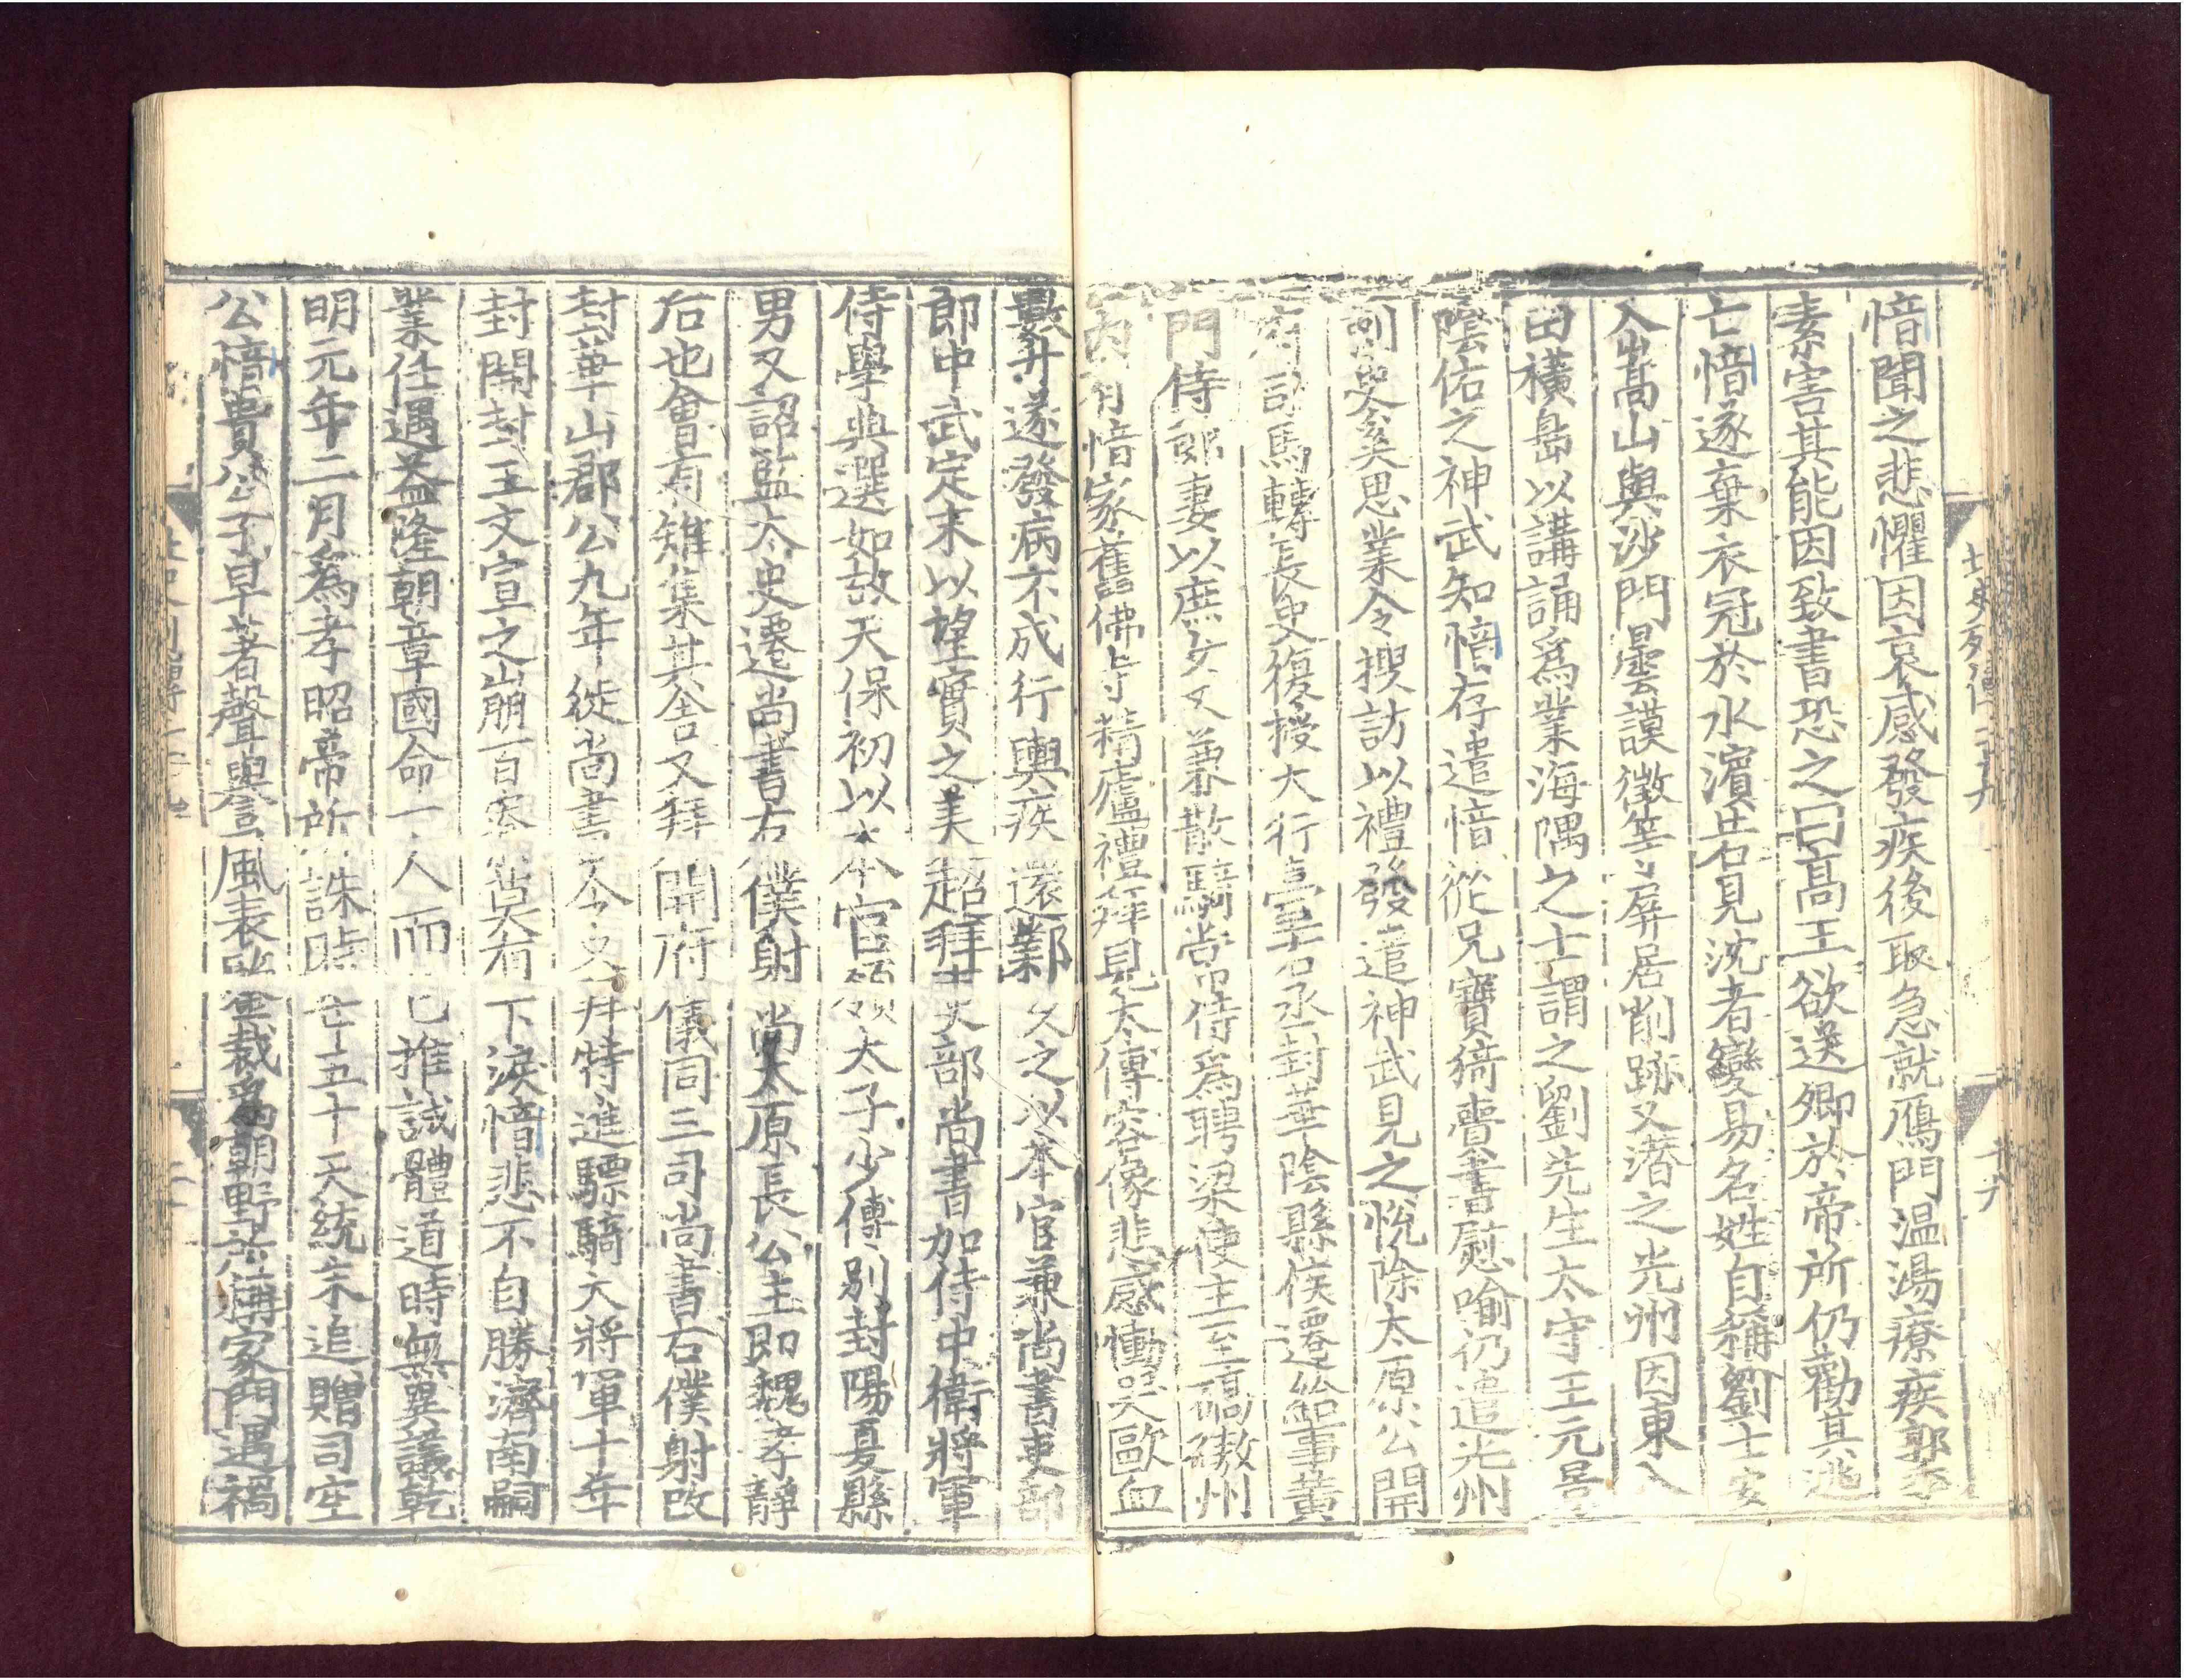 愔聞之悲懼因哀感發疾後取急就鴈門温湯療疾郭秀
素害其能因致書恐之曰髙王欲送卿於帝所仍勸其逃
亡愔遂棄衣冠於水濱若見沈者變易名姓自稱劉士安
入嵩山與沙門曇謨徵等屏居削跡又潜之光州因東入
田橫島以講誦爲業海隅之士謂之劉先生太守王元景
陰佑之神武知愔存遣愔從兄寶猗賷書慰喻仍遣光州
刺史奚思業令搜訪以禮發遣神武見之悅除太原公開
府司馬轉長史復授大行臺右丞封華陰縣侯遷給事黃
門侍郎妻以庶女又兼散騎常侍爲聘梁使主至碻磝州
内有愔家舊佛寺精廬禮拜見太傅容像悲感慟哭歐血
北史列傳二十九
數升遂發病不成行輿疾還鄴久之以本官兼尚書吏部
郎中武定末以望實之美超拜吏部尚書加侍中衛將軍
侍學典選如故天保初以本官領太子少傅別封陽夏縣
男又詔監太史遷尚書右僕射尚太原長公主即魏孝靜
后也會有雉集其舍又拜開府儀同三司尚書右僕射改
封華山郡公九年從尚書令又拜特進驃騎大將軍十年
封開封王文宣之崩百寮莫有下淚愔悲不自勝濟南嗣
業任遇益隆朝章國命一人而已推誠體道時無異議乾
明元年二月爲孝昭帝所誅時年五十天統末追贈司空
公愔貴公子早著聲譽風表鑒裁爲朝野所稱家門遇禍